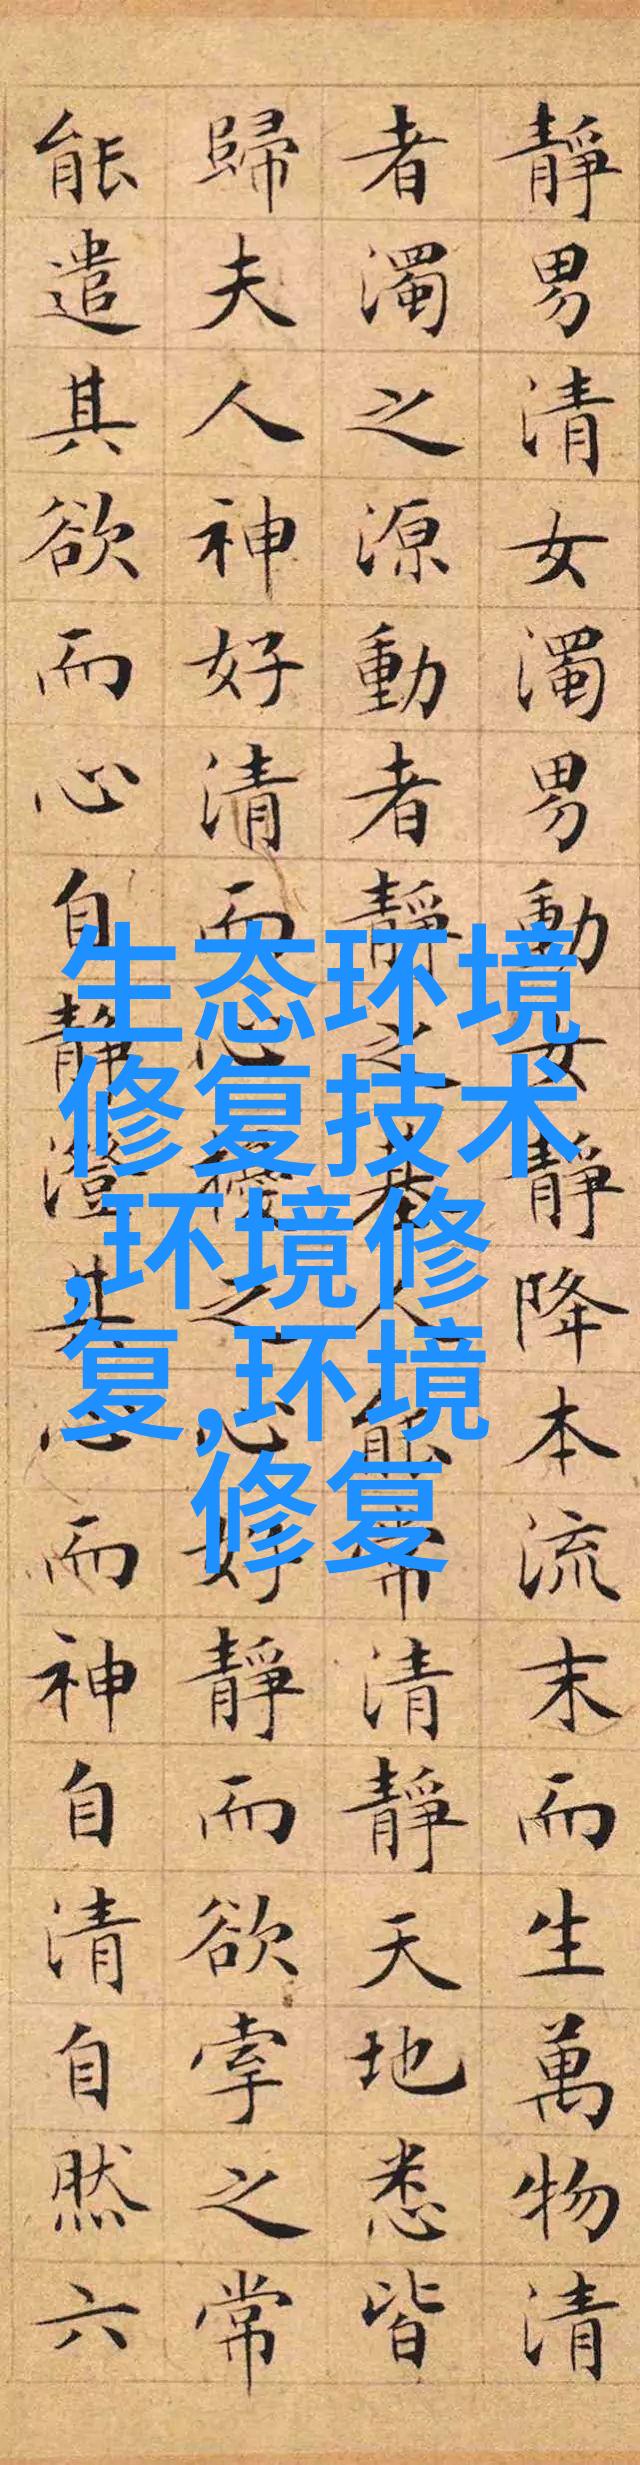 靜男清女濁男動女靜降本流末而生萬物清
者濁之源動者靜之基人能常清靜天地悉皆
歸夫人神好清而心擾之心好靜而欲牽之常
能遣其欲而心自靜澄其心而神自清自然六
生态环境
修复技术
,环境修
复,环境
修复